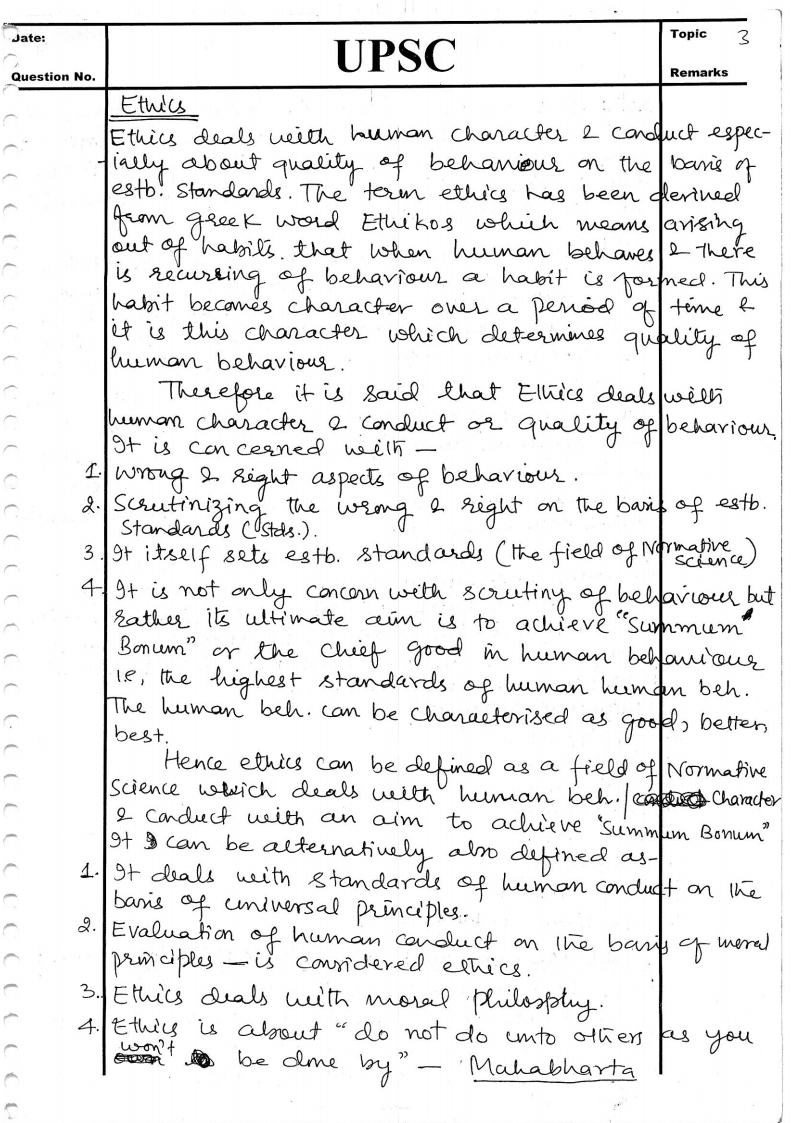 Date:
UPSC
Topic 3
Question No.
Remarks
Ethics
Ethics deals with human character & conduct espec-
ially about quality of behaviour on the basis of
estb. standards. The term ethics has been derived
from greek word Ethikos which means arising
out of habits. that when human behaves & there
is recurring of behaviour a habit is formed. This
habit becomes character over a period of time &
it is this character which determines quality of
human behaviour.
Therefore it is said that Ethics deals with
human character & conduct or quality of behaviour.
It is concerned with —
1. Wrong & right aspects of behaviour.
2. Scrutinizing the wrong & right on the basis of estb.
Standards (Stds.).
3. It itself sets estb. standards (the field of Normative
Science)
4. It is not only concern with scrutiny of behaviour but
rather its ultimate aim is to achieve "Summum
Bonum" or the chief good in human behaviour
ie, the highest standards of human human beh.
The human beh. can be characterised as good, better,
best.
Hence ethics can be defined as a field of Normative
Science which deals with human beh./ Character
& conduct with an aim to achieve "Summum Bonum"
It can be alternatively also defined as-
1. It deals with standards of human conduct on the
basis of universal principles.
2. Evaluation of human conduct on the basis of moral
principles — is considered ethics.
3. Ethics deals with moral philosophy.
4. Ethics is about "do not do unto others as you
won't be done by" — Mahabharta